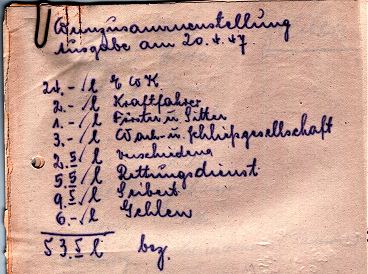 Benzinzusammenstellung
Ausgabe am 20.4.47.
24.-/l E W K
2.-/l Kraftfahrer
1.-/l Förster u. Sitter
3.-/l Wach- u. Schließgesellschaft
2.5/l verschiedene
5.5/l Rettungsdienst
9.5/l Seibert
6.-/l Gehlen
53.5 l bez.